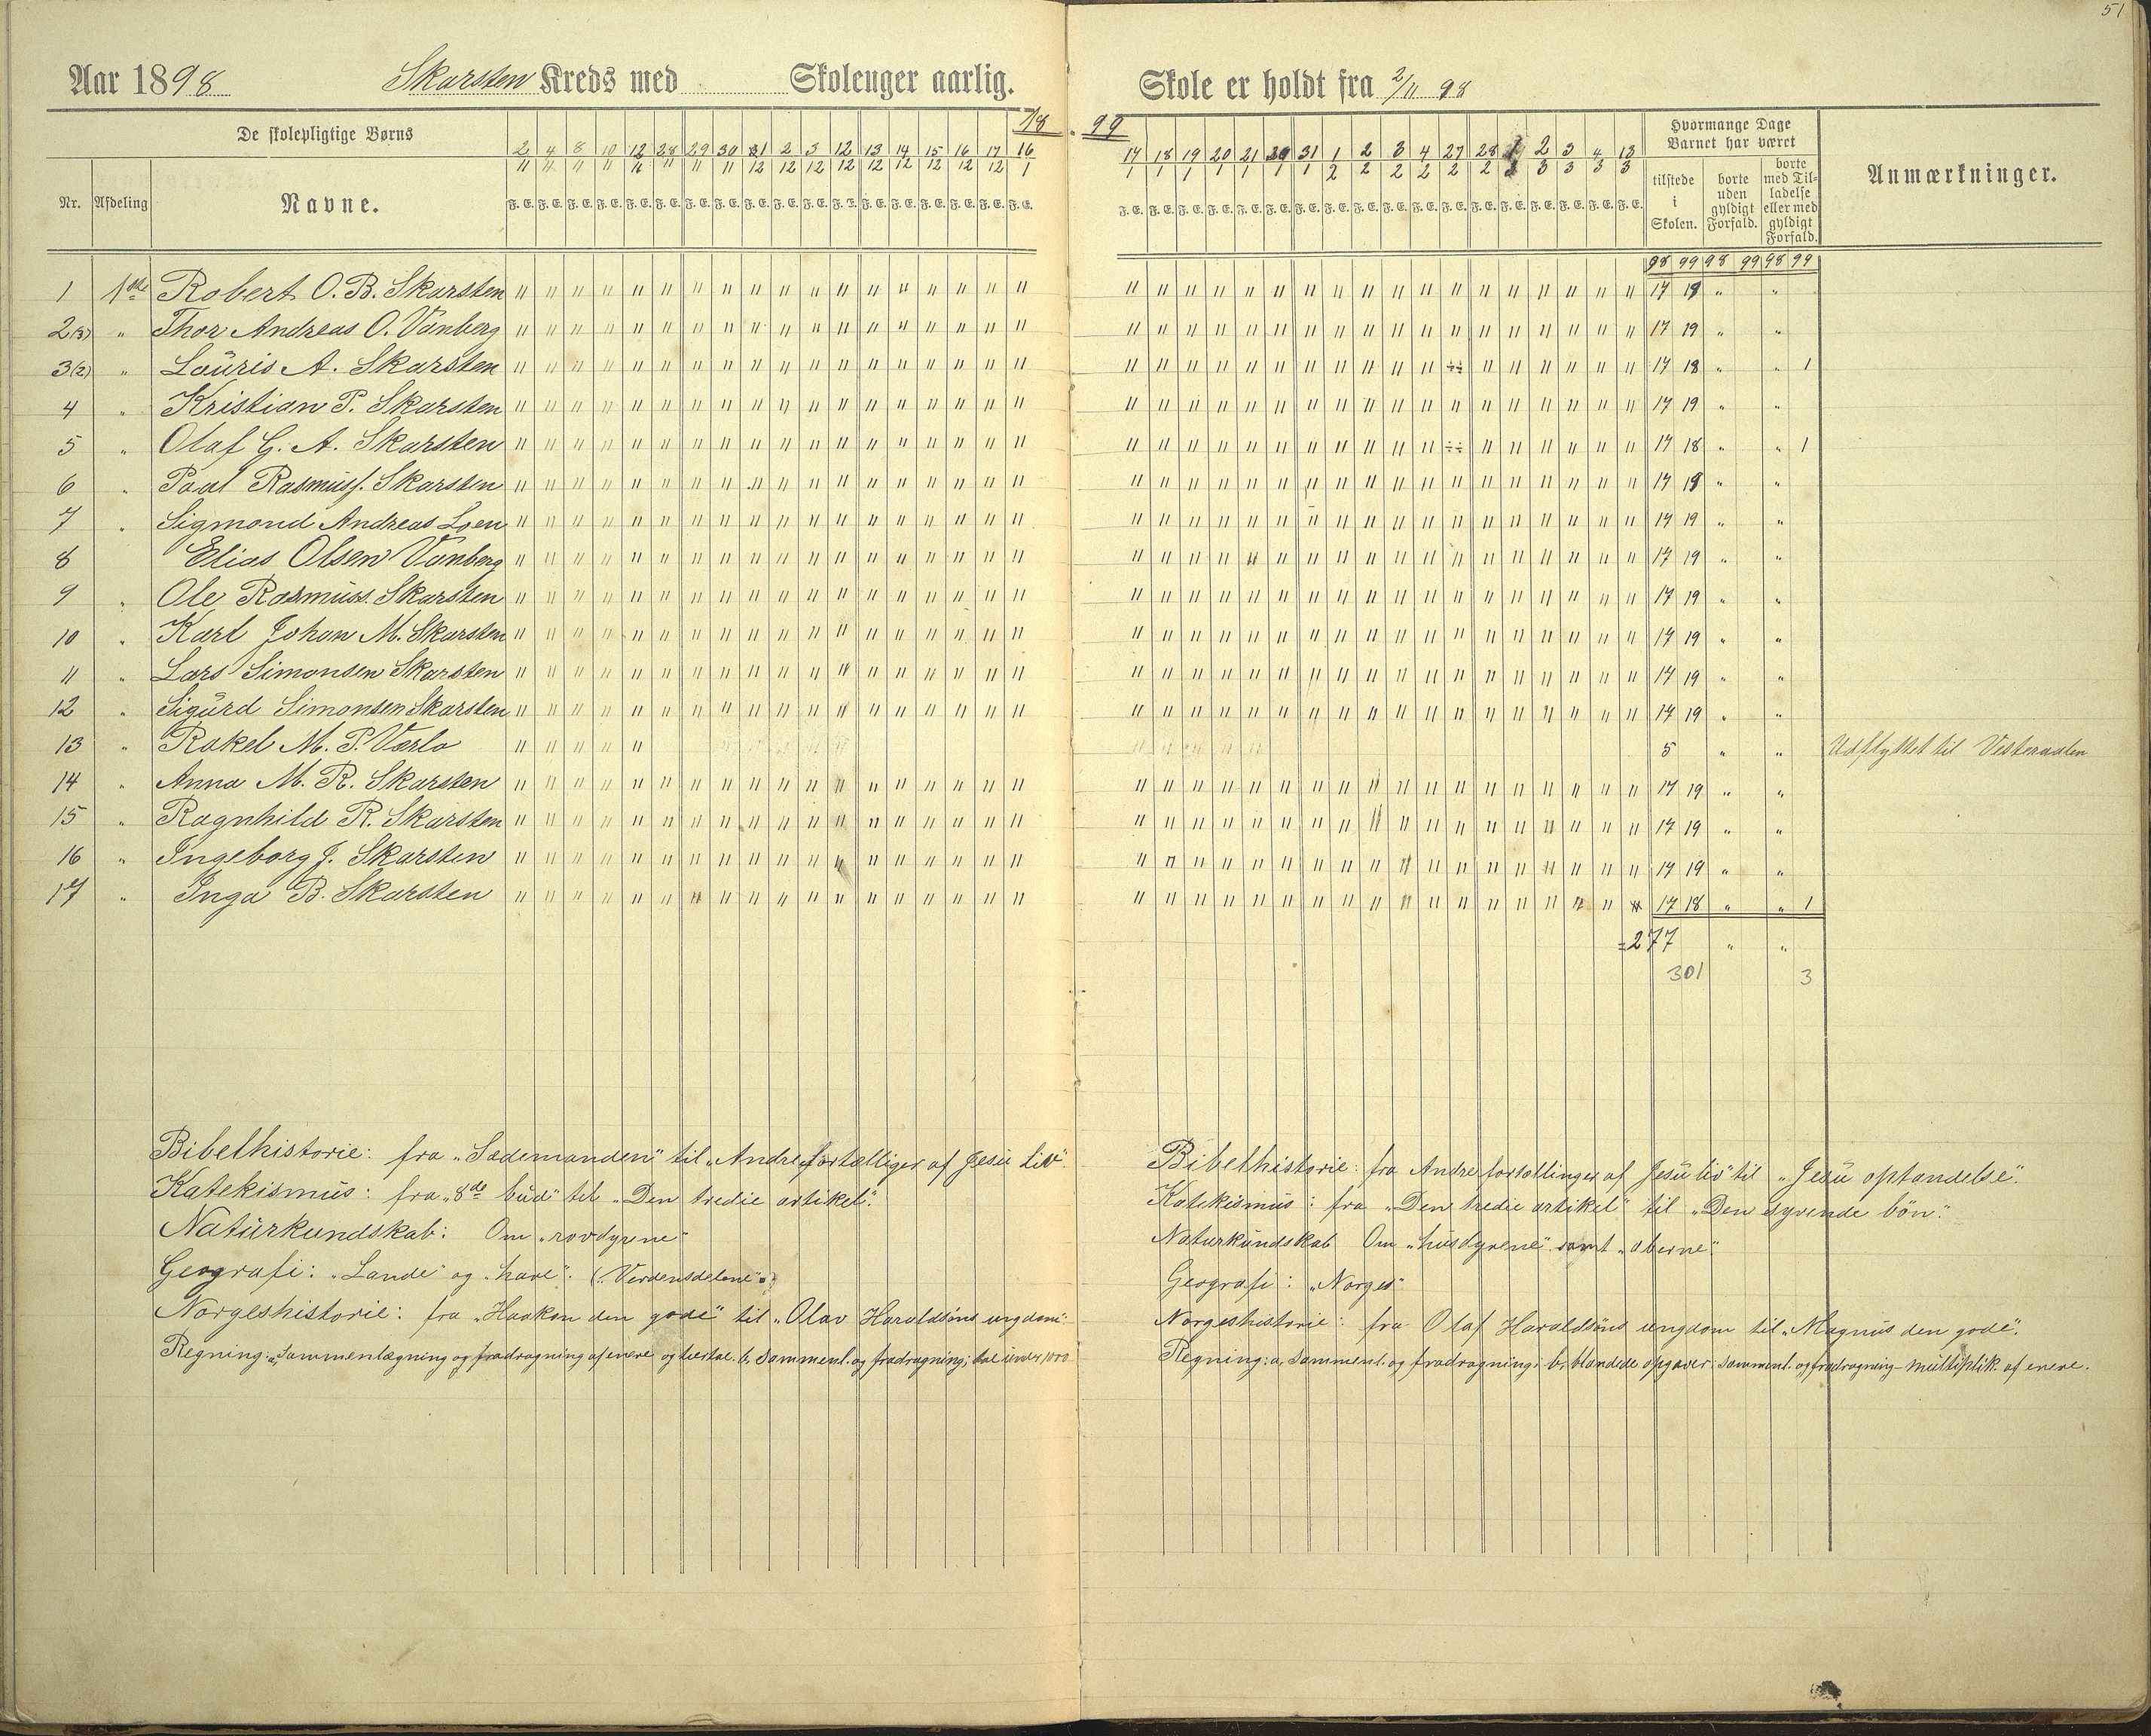 51
Aar 1898 Skarsten Kreds med Skoleuger aarlig. Skole er holdt fra 2/11 98
1/8 99
De skolepligtige Børns
Hvormange Dage Barnet har været
Nr. Afdeling Navne.
2/11 4/11 8/11 10/11 12/11 28/11 29/11 30/11 1/12 2/12 3/12 12/12 13/12 14/12 15/12 16/12 17/12 16/1
17/1 18/1 19/1 20/1 21/1 31/1 1/2 2/2 3/2 4/2 27/2 28/2 1/3 2/3 3/3 4/3 13/3
F. E. F. E. F. E. F. E. F. E. F. E. F. E. F. E. F. E. F. E. F. E. F. E. F. E. F. E. F. E. F. E. F. E. F. E.
F. E. F. E. F. E. F. E. F. E. F. E. F. E. F. E. F. E. F. E. F. E. F. E. F. E. F. E. F. E. F. E. F. E. F. E.
tilstede i Skolen.
borte uden gyldigt Forfald.
borte med Tilladelse eller med gyldigt Forfald.
Anmærkninger.
98 99 98 99 98 99
1 1ste Robert O. B. Skarsten 17 19 " "
2(3) " Thor Andreas O. Vanberg 17 19 " "
3(2) " Lauris A. Skarsten 17 18 " " 1
4 " Kristian P. Skarsten 17 19 " "
5 " Olaf G. A. Skarsten 17 18 " " 1
6 " Paul Rasmuss. Skarsten 17 19 " "
7 " Sigmond Andreas Loen 17 19 " "
8 Elias Olsen Vanberg 17 19 " "
9 " Ole Rasmuss. Skarsten 17 19 " "
10 " Karl Johan M. Skarsten 17 19 " "
11 " Lars Simonsen Skarsten 17 19 " "
12 " Sigurd Simonsen Skarsten 17 19 " "
13 " Rakel M. P. Værlo 5 " " Udflyttet til Vesteraalen
14 " Anna M. R. Skarsten 17 19 " "
15 " Ragnhild R. Skarsten 17 19 " "
16 " Ingeborg J. Skarsten 17 19 " "
17 " Inga B. Skarsten 17 18 " " 1
=277 " "
301 3
Bibelhistorie: fra "Sædemanden" til "Andre fortælliger af Jesu Liv".
Katekismus: fra "8de bud" til "Den tredie artikel".
Naturkundskab: Om "rovdyrene"
Geografi: "Lande" og "have". ("Verdensdelene".)
Norgeshistorie: fra "Haakon den gode" til "Olav Haraldsöns ungdom".
Regning: a, Sammenlægning og fradragning af enere og tiertal. b, Samment. og fradragning; tal under 1000
Bibelhistorie: fra Andre fortællinger af Jesu liv" til "Jesu opstandelse".
Katekismus: fra "Den tredie artikel" til "Den syvende bön".
Naturkundskab Om "husdyrene" samt "aberne".
Geografi: "Norges"
Norgeshistorie: fra Olaf Haraldsöns ungdom til "Magnus den gode".
Regning: a, samment. og fradragning; b, blandede opgaver: samment. og fradragning - multiplik. af enere.